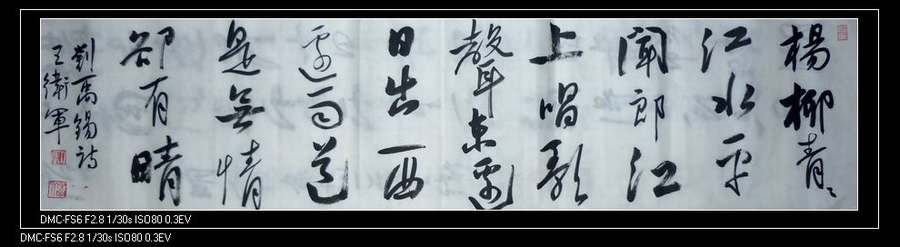 楊柳青〻
江水平
聞郎江
上唱歌
聲東邊
日出西
邊雨道
是無情
卻有晴
劉禹錫詩
王衛軍
DMC-FS6 F2.8 1/30s ISO80 0.3EV
DMC-FS6 F2.8 1/30s ISO80 0.3EV